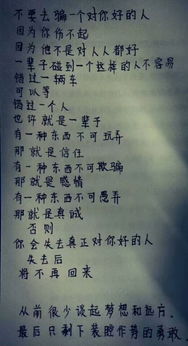 不要去骗一个对你好的人
因为你伤不起
因为他不是对人人都好
一辈子碰到一个这样的人不容易
错过一辆车
可以等
错过一个人
也许就是一辈子
有一种东西不可玩弄
那就是信任
有一种东西不可欺骗
那就是感情
有一种东西不可愚弄
那就是真诚
否则
你会失去真正对你好的人
失去后
将不再回来
从前很少谈起梦想和远方。
最后只剩下装腔作势的勇敢